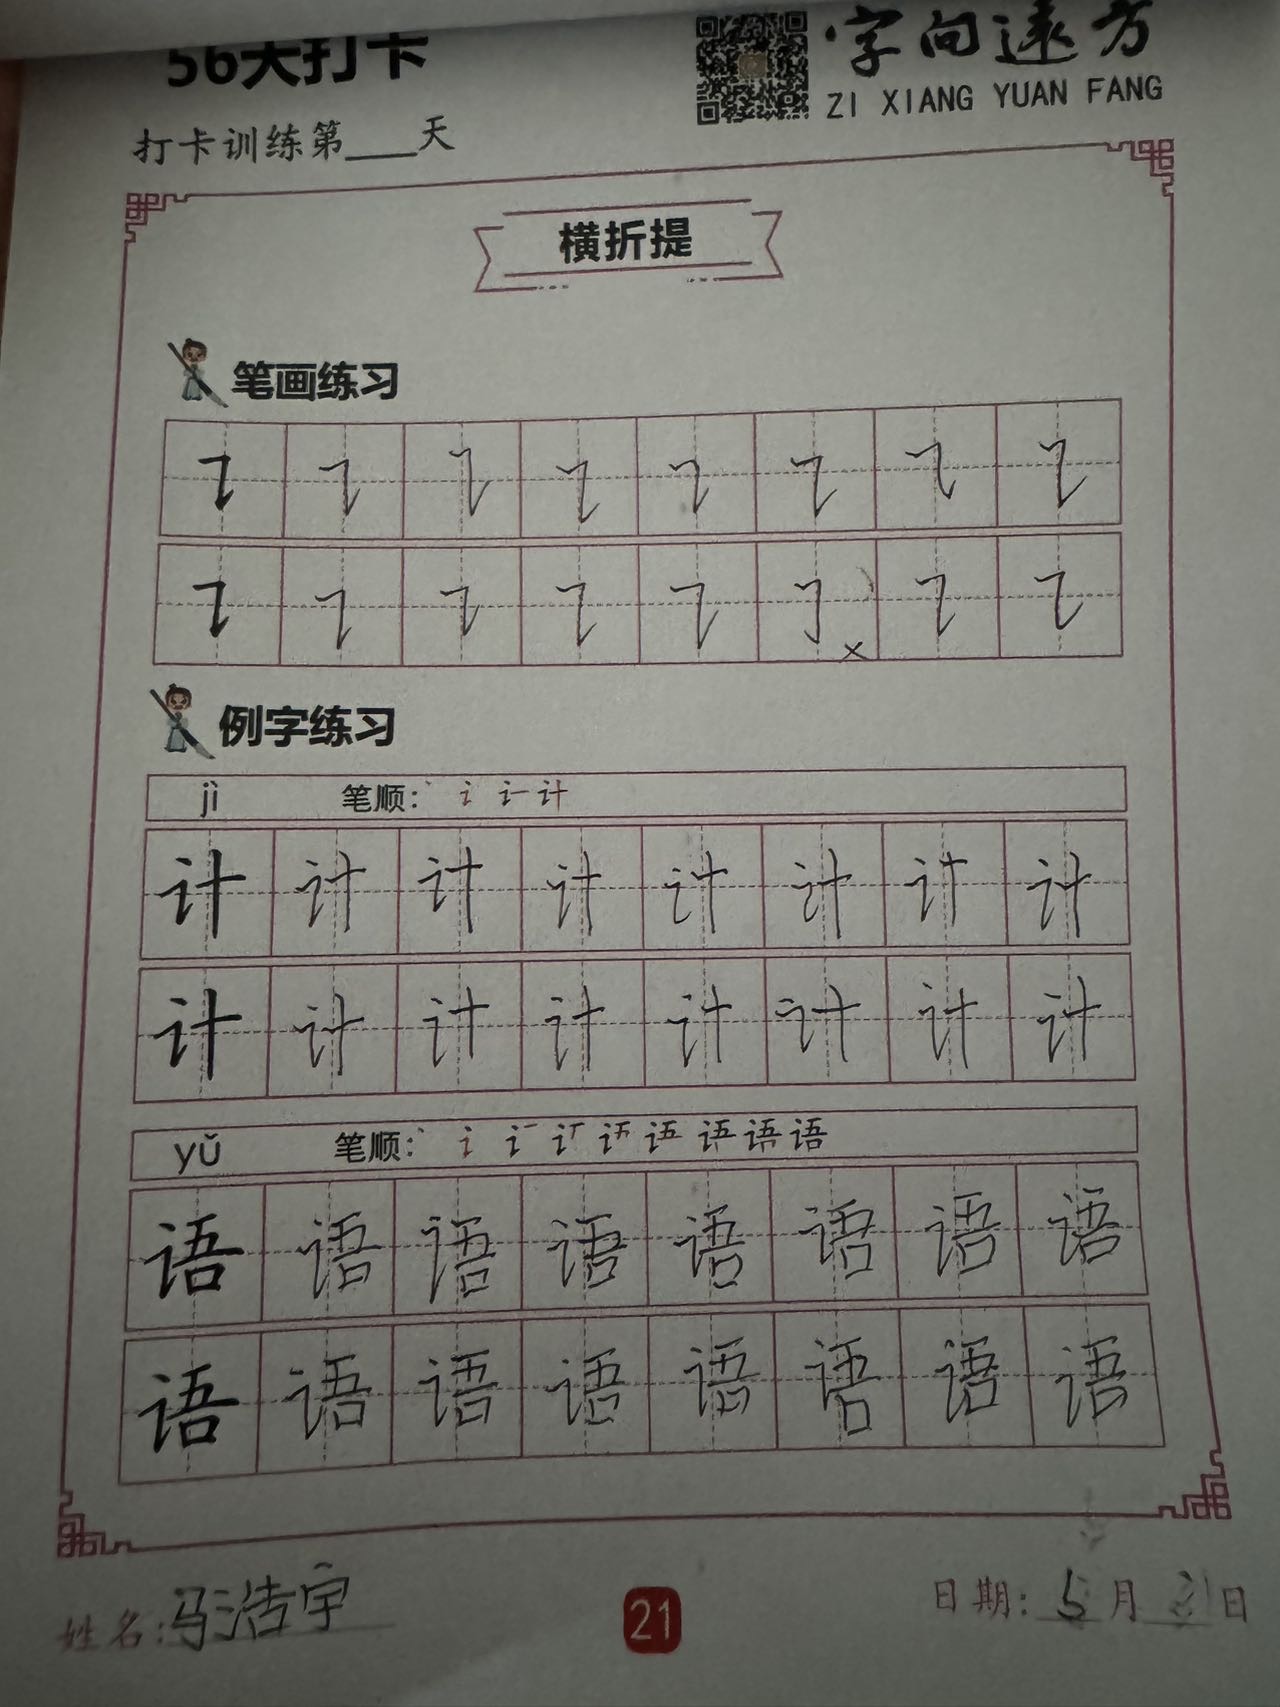 56天打卡
字向遠方
ZI XIANG YUAN FANG
打卡训练第____天
横折提
笔画练习
例字练习
jì 笔顺:丶 讠 计
计 计 计 计 计 计 计 计
计 计 计 计 计 计 计 计
yǔ 笔顺: 语
语 语 语 语 语 语 语 语
语 语 语 语 语 语 语 语
姓名:冯浩宇
21
日期: 5月31日